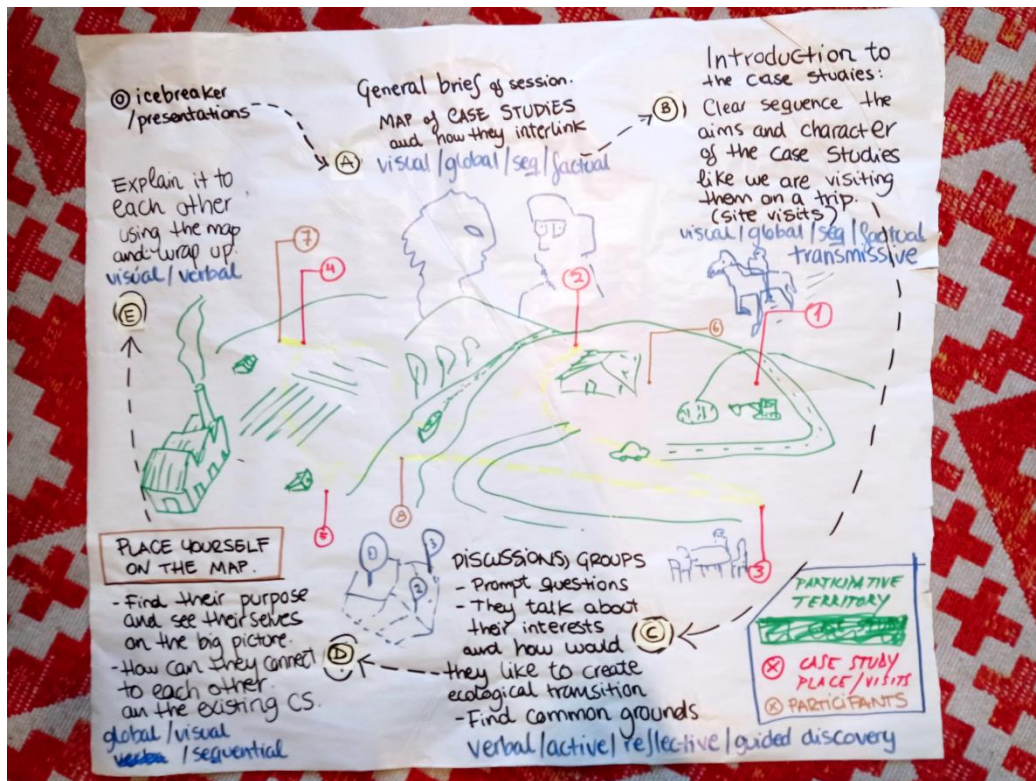 ⓪ icebreaker
/presentations
General brief of session.
MAP of CASE STUDIES
and how they interlink
Ⓐ
visual/global/seq/factual
Introduction to
the case studies:
Ⓑ
Clear sequence the
aims and character
of the Case Studies
like we are visiting
them on a trip.
(site visits)
visual/global/seq/factual
transmissive
Explain it to
each other
using the map
and wrap up.
visual/verbal
Ⓔ
7
4
2
6
1
8
3
PLACE YOURSELF
ON THE MAP.
- Find their purpose
and see theirselves
on the big picture.
- How can they connect
to each other
an the existing CS.
global/visual
/sequential
Ⓓ
1
2
3
DISCUSSIONS, GROUPS
- Prompt questions
- They talk about
their interests
and how would
they like to create
ecological transition
- Find common grounds
verbal/active/reflective/guided discovery
Ⓒ
PARTICIPATIVE
TERRITORY
Ⓧ CASE STUDY
PLACE/VISITS
Ⓧ PARTICIPANTS